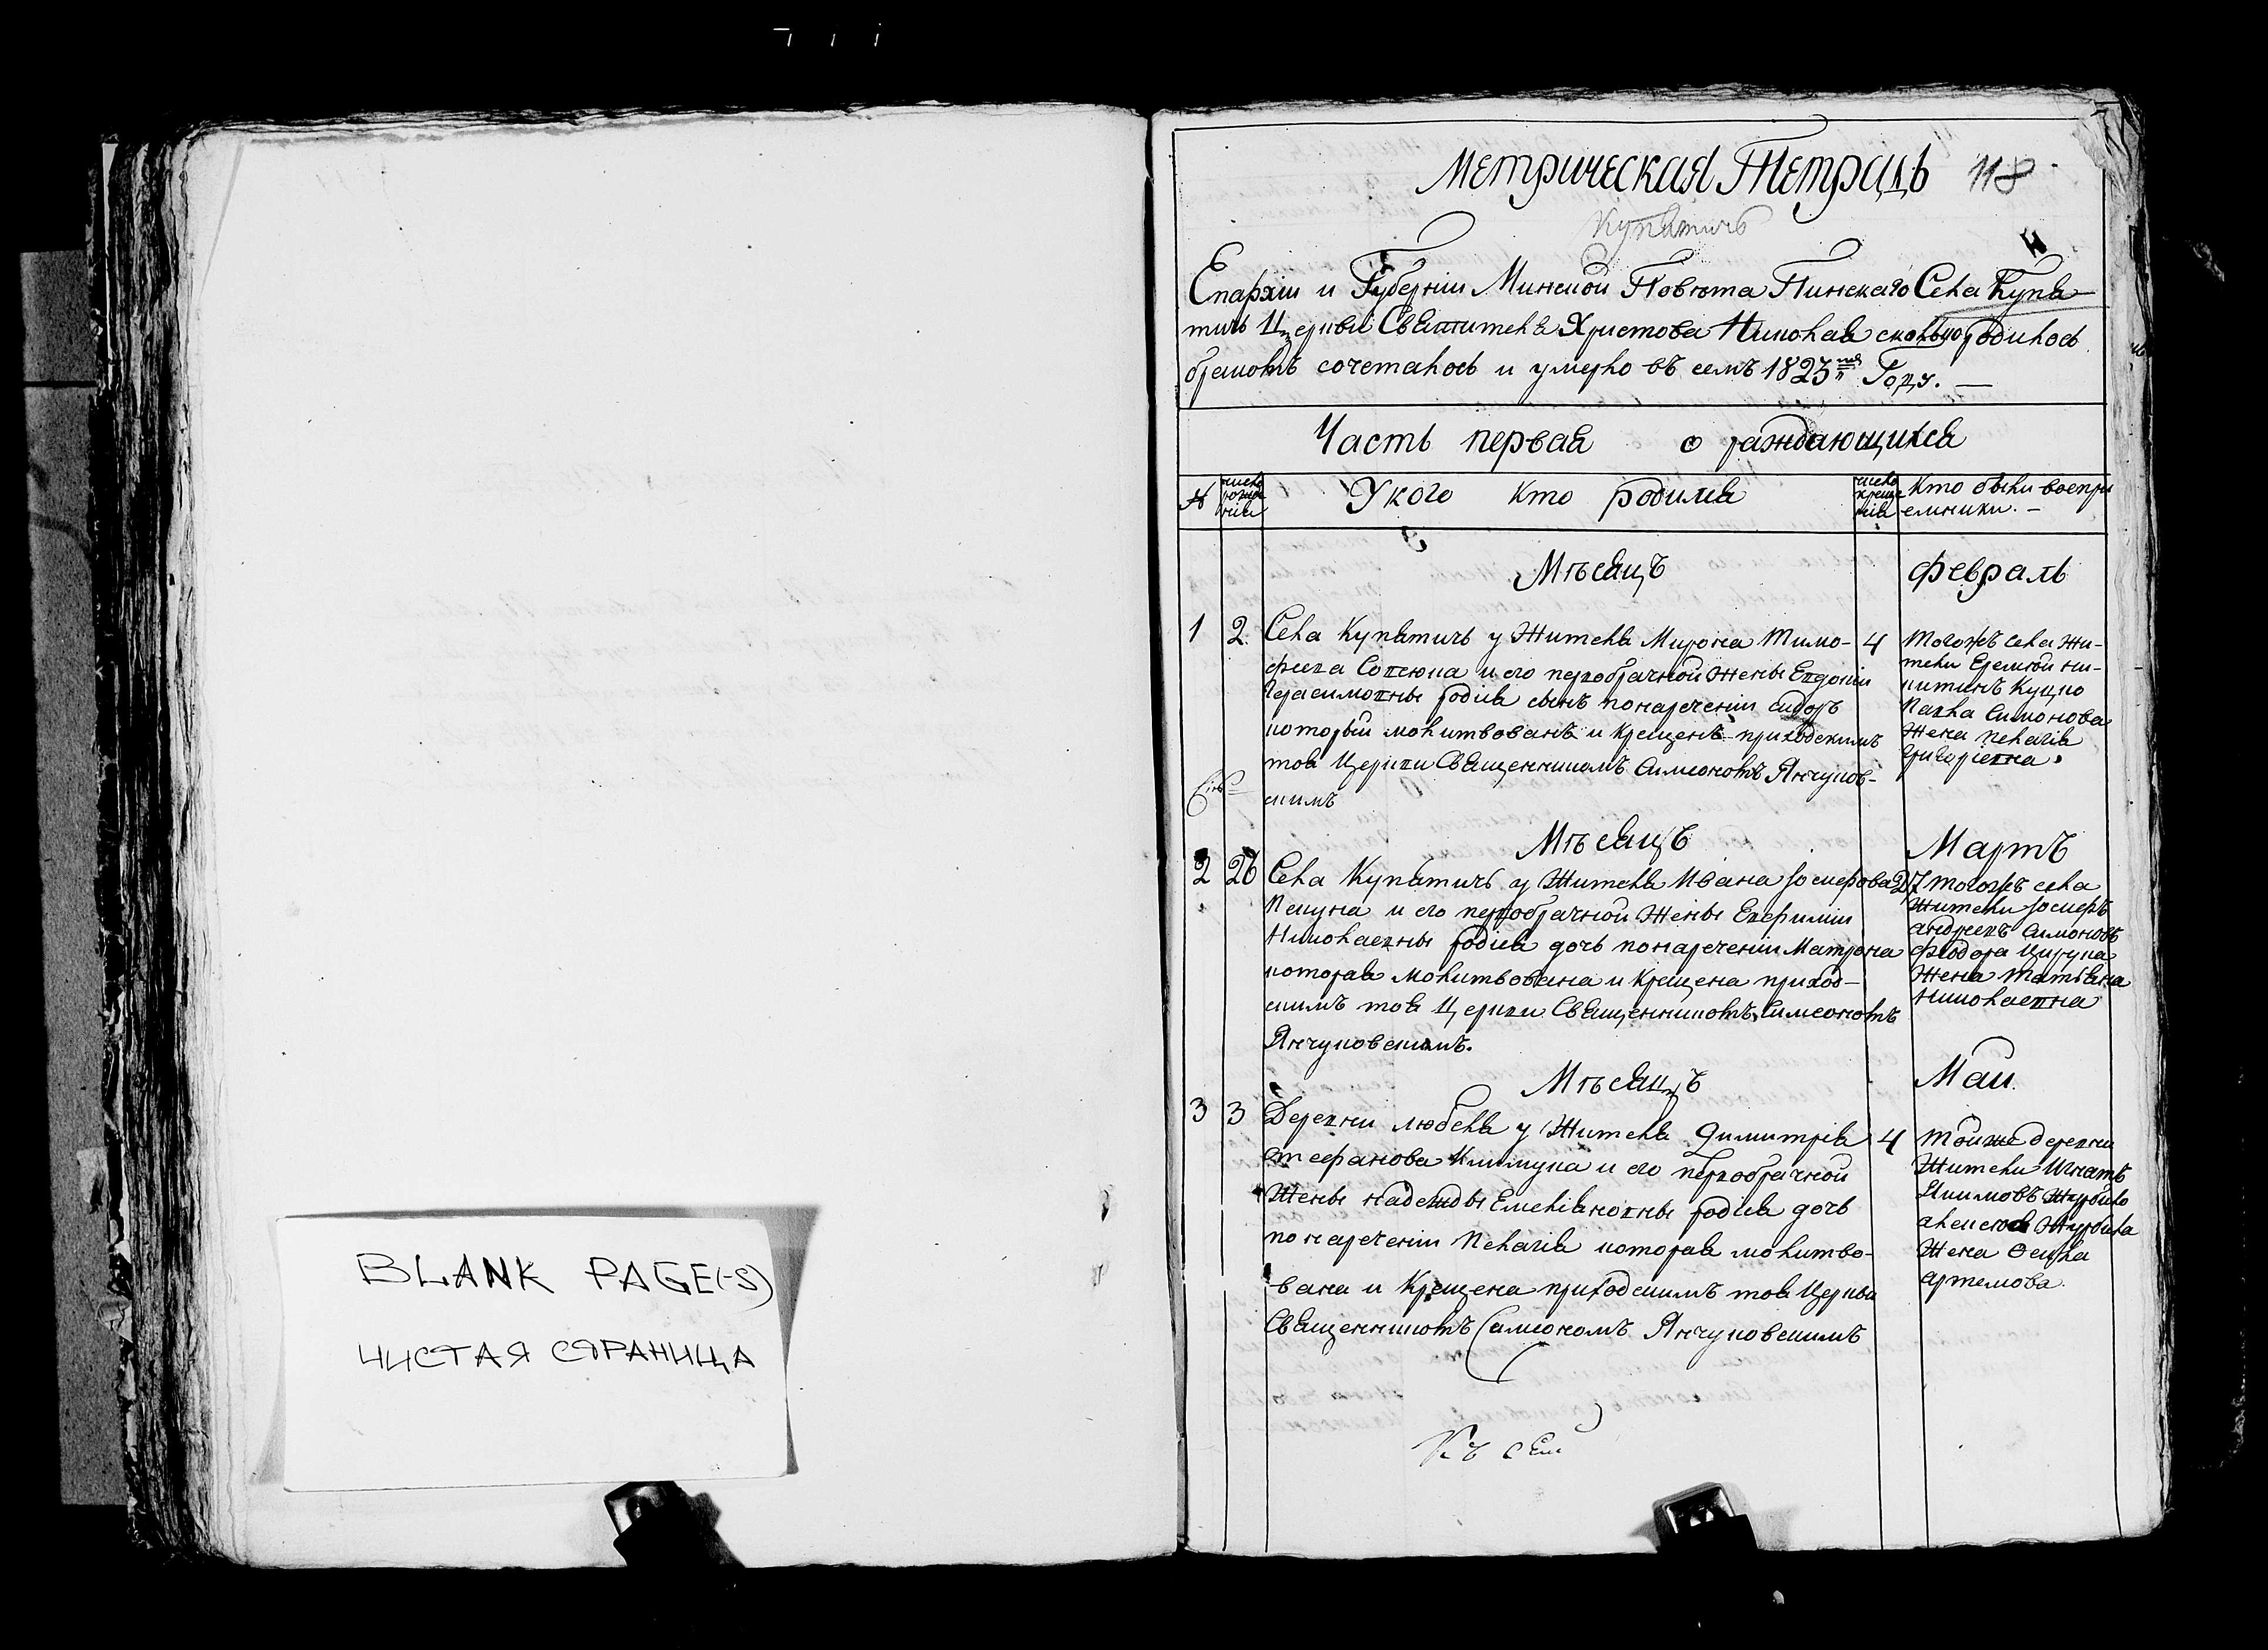 BLANK PAGE(-S)
ЧИСТАЯ СТРАНИЦА
Метрическая Тетрадь 118
Купятичъ
Епархіи и Губерніи Минской Повѣта Пинскаго Села Купя
тичь Церкви Святителя Христова Николая сколько родилось
бракомъ сочеталось и умерло въ семъ 1823 Году.
Часть первая о раждающихся
№ число рожде нія У кого кто родился число креще нія Кто были воспри
емники.
Мѣсяцъ Февраль
1 2 Села Купятичь у Жителя Мирона Тимо- 4
феева и его первобрачной Жены Евдокіи
Герасимовны родися сынъ понареченіи Сидоръ
который молитвованъ и Крещенъ приходскимъ
тоя Церкви Священникомъ Симеономъ Янчуков-
скимъ
тогожъ села Жи-
тели Еремѣй Ни-
китинъ
Павла Симонова
Жена Пелагія
Григоріевна.
Мѣсяцъ Мартъ
2 26 Села Купятичь у Жителя Ивана Іосифова 27
и его первобрачной Жены Евфиміи
Николаевны родися дочь понареченіи Матрона
которая Молитвована и Крещена приход-
скимъ тоя Церкви Священникомъ Симеономъ
Янчуковскимъ.
тогожъ села
Жители Іосифъ
Андреевъ Симоновъ
Феодора
Жена Татіяна
Николаевна
Мѣсяцъ Май.
3 3 Деревни Любеля у Жителя Димитрія 4
Стефанова Климука и его первобрачной
Жены Надежды Емеліяновны родися дочь
понареченіи Пелагія которая молитво-
вана и Крещена приходскимъ тоя Церкви
Священникомъ Симеономъ Янчуковскимъ
тойже деревни
Жители Игнатъ
Якимовъ
Алексея
Жена
Артемова.
Къ сей